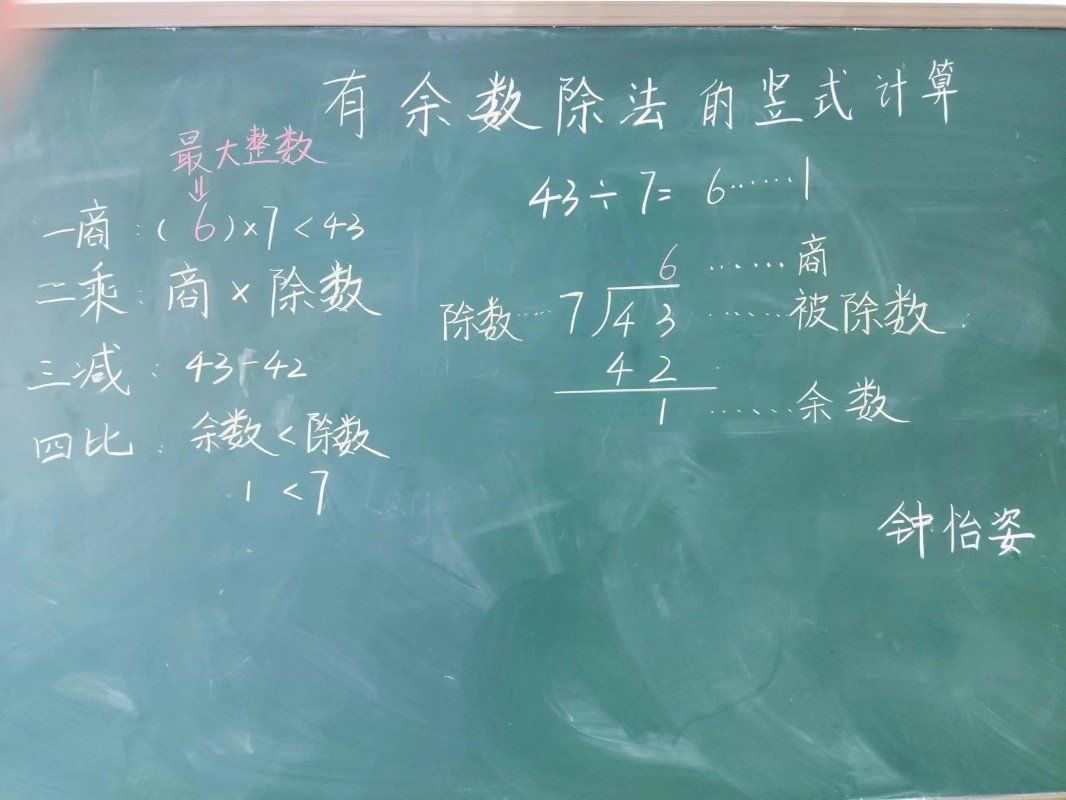 有余数除法的竖式计算
最大整数
⇓
一商：(6)×7<43
二乘：商×除数
三减：43-42
四比：余数<除数
1<7
43÷7=6……1
6……商
除数……7)43……被除数
42
1……余数
钟怡姿